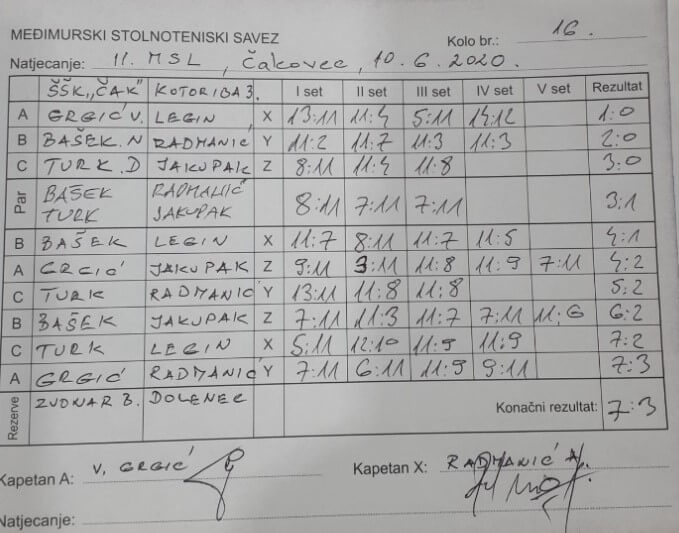 MEĐIMURSKI STOLNOTENISKI SAVEZ Kolo br.: 16.
Natjecanje: II. MSL, Čakovec, 10.6.2020.
ŠŠK „ČAK" KOTORIBA 3. I set II set III set IV set V set Rezultat
A GRGIĆ V. LEGIN X 13:11 11:4 5:11 14:12 1:0
B BAŠEK.N RADMANIĆ Y 11:2 11:7 11:3 11:3 2:0
C TURK.D JAKUPAK Z 8:11 11:4 11:8 3:0
Par BAŠEK RADMANIĆ 8:11 7:11 7:11 3:1
TURK JAKUPAK
B BAŠEK LEGIN X 11:7 8:11 11:7 11:5 4:1
A GRGIĆ JAKUPAK Z 9:11 3:11 11:8 11:9 7:11 4:2
C TURK RADMANIĆ Y 13:11 11:8 11:8 5:2
B BAŠEK JAKUPAK Z 7:11 11:3 11:7 7:11 11:6 6:2
C TURK LEGIN X 5:11 12:10 11:9 11:9 7:2
A GRGIĆ RADMANIĆ Y 7:11 6:11 11:9 9:11 7:3
Rezerve ZVONAR B. DOLENEC Konačni rezultat: 7:3
Kapetan A: V. GRGIĆ Kapetan X: RADMANIĆ A.
Natjecanje: